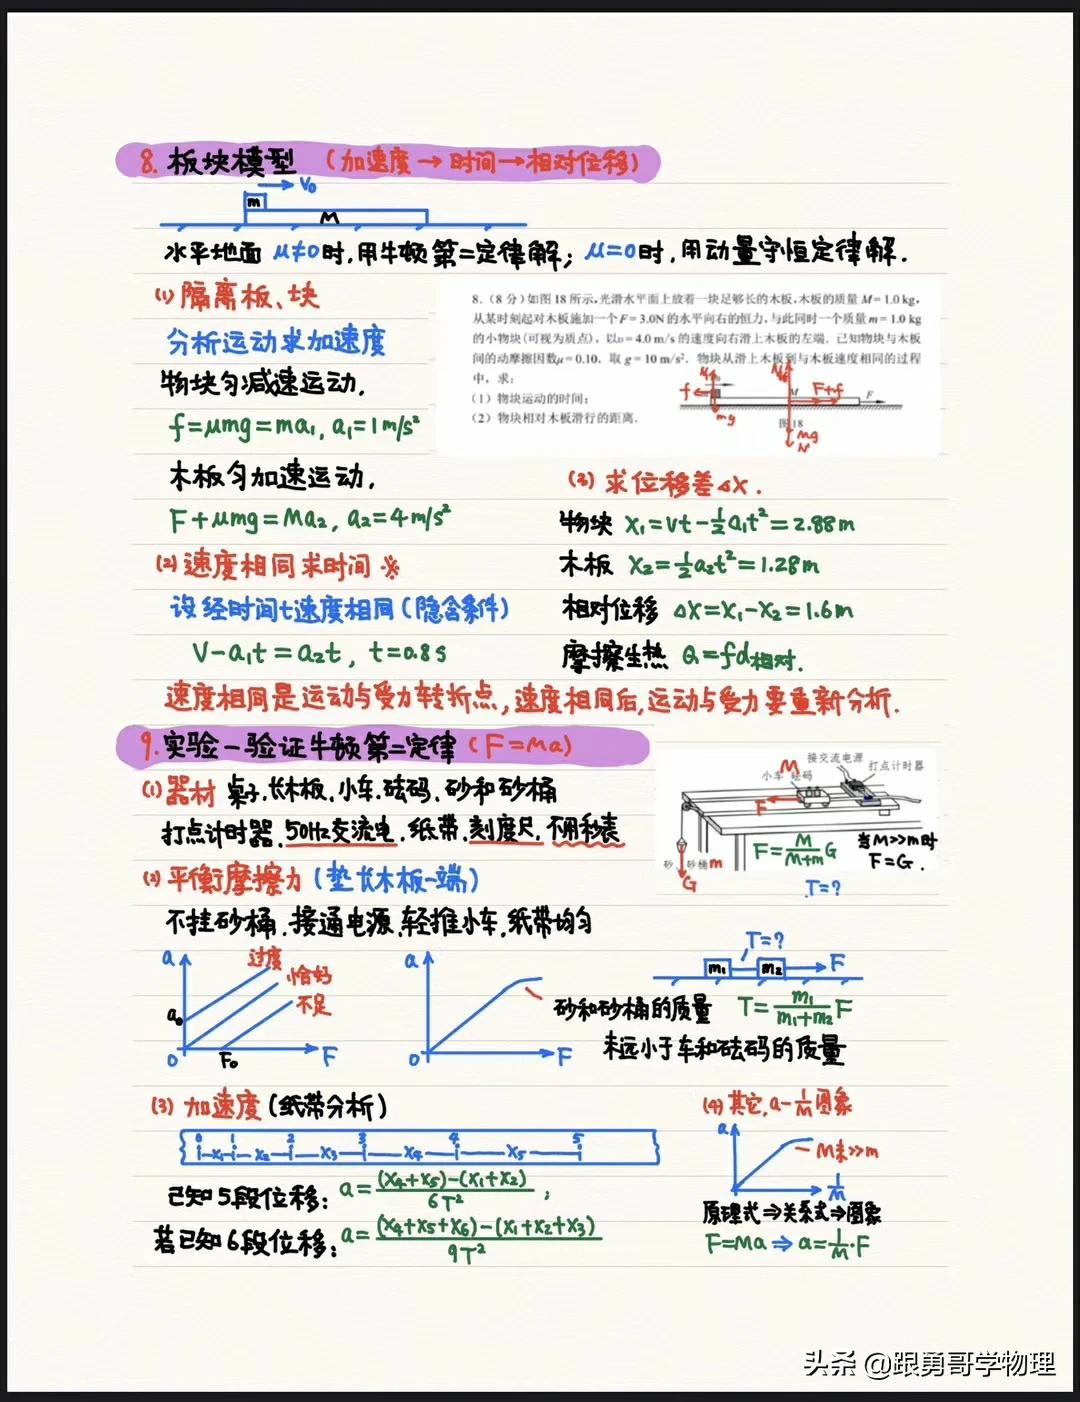 8. 板块模型 (加速度→时间→相对位移)
m
V₀
M
水平地面 μ≠0时,用牛顿第二定律解; μ=0时,用动量守恒定律解.
(1) 隔离板、块
分析运动求加速度
物块匀减速运动.
f=μmg=ma₁, a₁=1m/s²
木板匀加速运动.
F+μmg=Ma₂, a₂=4m/s²
(2) 速度相同求时间 ※
设经时间t速度相同(隐含条件)
V-a₁t=a₂t, t=0.8s
8.(8分)如图18所示,光滑水平面上放着一块足够长的木板,木板的质量 M=1.0 kg,
从某时刻起对木板施加一个F=3.0N的水平向右的恒力,与此同时一个质量m=1.0 kg
的小物块(可视为质点),以υ=4.0 m/s 的速度向右滑上木板的左端.已知物块与木板
间的动摩擦因数μ=0.10.取 g=10 m/s².物块从滑上木板到与木板速度相同的过程
中,求:
(1)物块运动的时间;
(2)物块相对木板滑行的距离.
f
mg
M
F+f
F
图18
Mg
N
(3) 求位移差△X.
物块 X₁=Vt-½a₁t²=2.88m
木板 X₂=½a₂t²=1.28m
相对位移 △X=X₁-X₂=1.6m
摩擦生热 Q=fd相对.
速度相同是运动与受力转折点,速度相同后,运动与受力要重新分析.
9.实验—验证牛顿第二定律(F=Ma)
(1)器材 桌子.长木板.小车.砝码.砂和砂桶
打点计时器.50Hz交流电.纸带.刻度尺.不用秒表
(2)平衡摩擦力(垫长木板一端)
不挂砂桶.接通电源.轻推小车.纸带均匀
接交流电源
打点计时器
M
小车 砝码
F
砂、砂桶m
G
F=M/(M+m) G
当M>>m时
F=G.
T=?
a
过度
恰好
不足
a₀
0
F₀
F
a
0
F
T=?
m₁
m₂
F
砂和砂桶的质量
T=m₁/(m₁+m₂) F
未远小于车和砝码的质量
(3) 加速度(纸带分析)
0 1 2 3 4 5
X₁ X₂ X₃ X₄ X₅
已知5段位移: a=((X₄+X₅)-(X₁+X₂))/6T² ;
若已知6段位移: a=((X₄+X₅+X₆)-(X₁+X₂+X₃))/9T²
(4)其它.a-1/M图象
a
M未>>m
1/M
原理式⇒关系式⇒图象
F=Ma ⇒ a=1/M·F
头条 @跟勇哥学物理